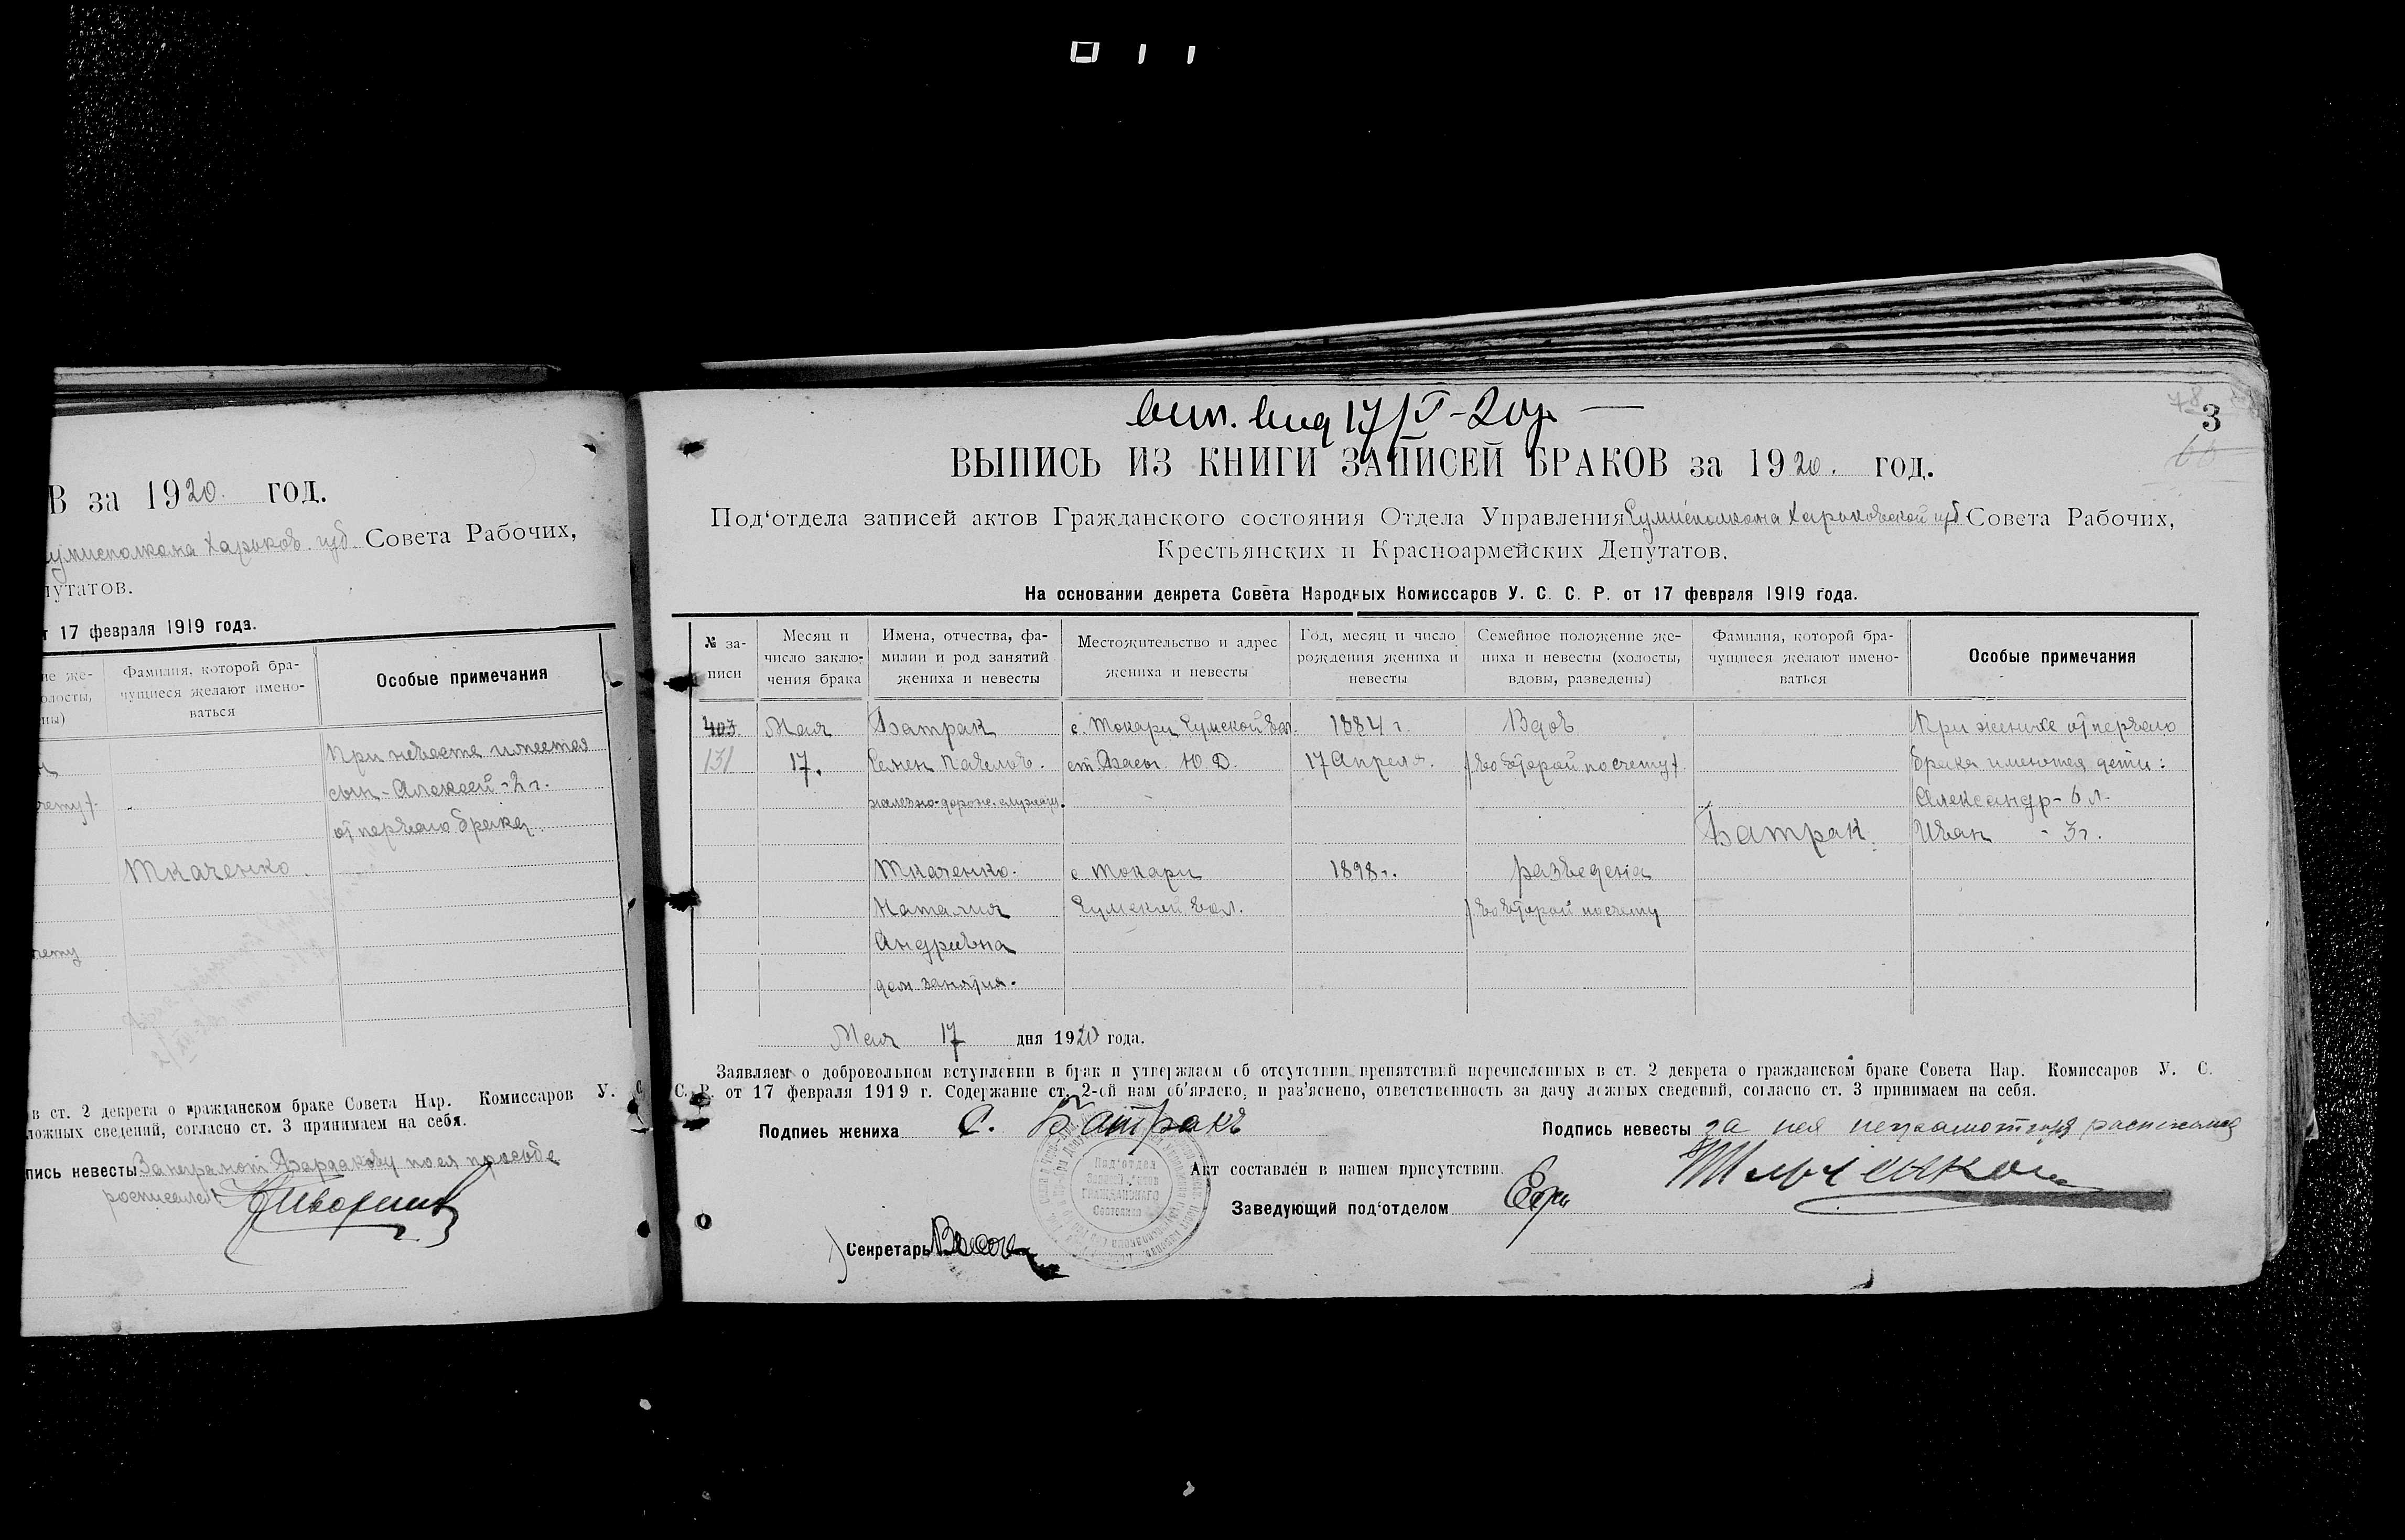 В за 1920 год.
умисполкома Харьков. губ Совета Рабочих,
путатов.
т 17 февраля 1919 года.
ие же-
олосты,
ны)
Фамилия, которой бра-
чущиеся желают имено-
ваться
Особые примечания
При невесте имеется
сын - Алексей - 2 г.
от первого брака
Ткаченко.
чету
в ст. 2 декрета о гражданском браке Совета Нар. Комиссаров У. С.
ложных сведений, согласно ст. 3 принимаем на себя.
пись невесты За неграмот по ея просьбе
росписался
17/V-20 г.
3
ВЫПИСЬ ИЗ КНИГИ ЗАПИСЕЙ БРАКОВ за 1920. год.
Под‘отдела записей актов Гражданского состояния Отдела Управления Сумисполкома Харьковской губ. Совета Рабочих,
Крестьянских и Красноармейских Депутатов.
На основании декрета Совета Народных Комиссаров У. С. С. Р. от 17 февраля 1919 года.
№ за-
писи
Месяц и
число заклю-
чения брака
Имена, отчества, фа-
милии и род занятий
жениха и невесты
Местожительство и адрес
жениха и невесты
Год, месяц и число
рождения жениха и
невесты
Семейное положение же-
ниха и невесты (холосты,
вдовы, разведены)
Фамилия, которой бра-
чущиеся желают имено-
ваться
Особые примечания
403 Мая Батрак с. Токари Сумской вол. 1884 г. Вдов При женихе от первого
131 17. Семен Павлов. ст. Басы Ю. Д. 17 Апреля. (во второй по счету). брака имеются дети:
железно-дорож. служащ. Александр - 6 л.
Батрак. Иван - 3 г.
Ткаченко. с. Токари 1898 г. разведена
Наталия Сумской вол. (во второй по счету
Андриевна
дом. занятия.
Мая 17 дня 1920 года.
Заявляем о добровольном вступлении в брак и утверждаем об отсутствии препятствий перечисленных в ст. 2 декрета о гражданском браке Совета Нар. Комиссаров У. С.
С. Р. от 17 февраля 1919 г. Содержание ст. 2-ой нам об‘явлено, и раз‘яснено, ответственность за дачу ложных сведений, согласно ст. 3 принимаем на себя.
Подпись жениха С. Батракъ
Подпись невесты за нея неграмотную
Акт составлен в нашем присутствии.
Заведующий под‘отделом
Секретарь